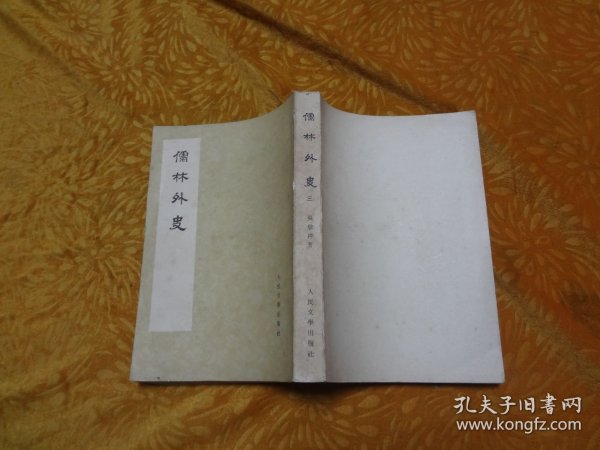 儒林外史
人民文學出版社
儒林外史
三
吳敬梓著
人民文學出版社
孔夫子旧书网
www.kongfz.com